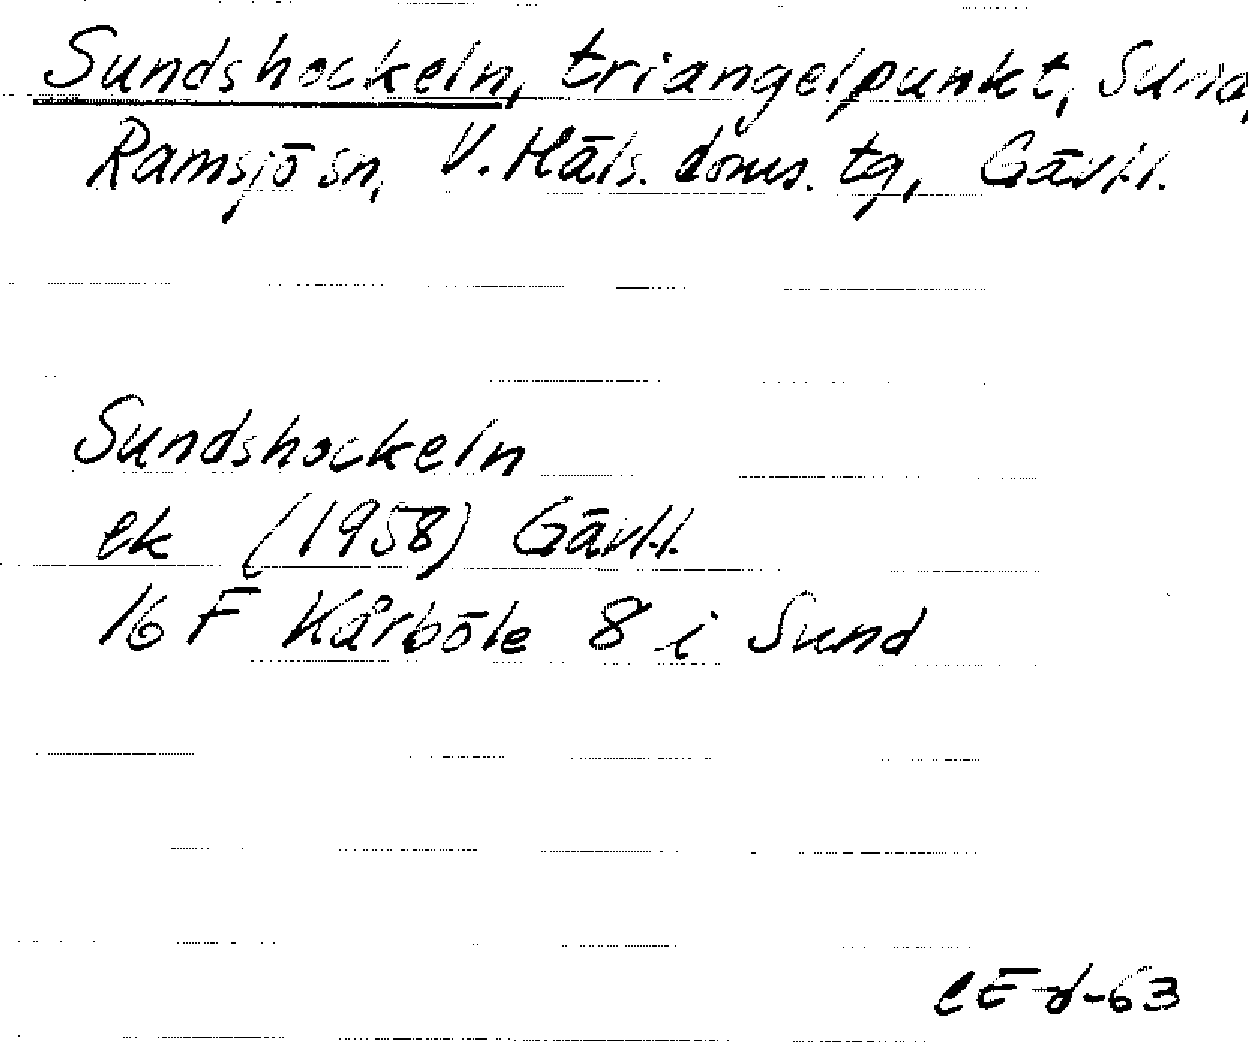 Sundshockeln, triangelpunkt, Sund,
Ramsjö sn, V. Häls. doms. tg, Gävl.l.
Sundshockeln
ek (1958) Gävl.l.
16 F Kårböle 8 i Sund